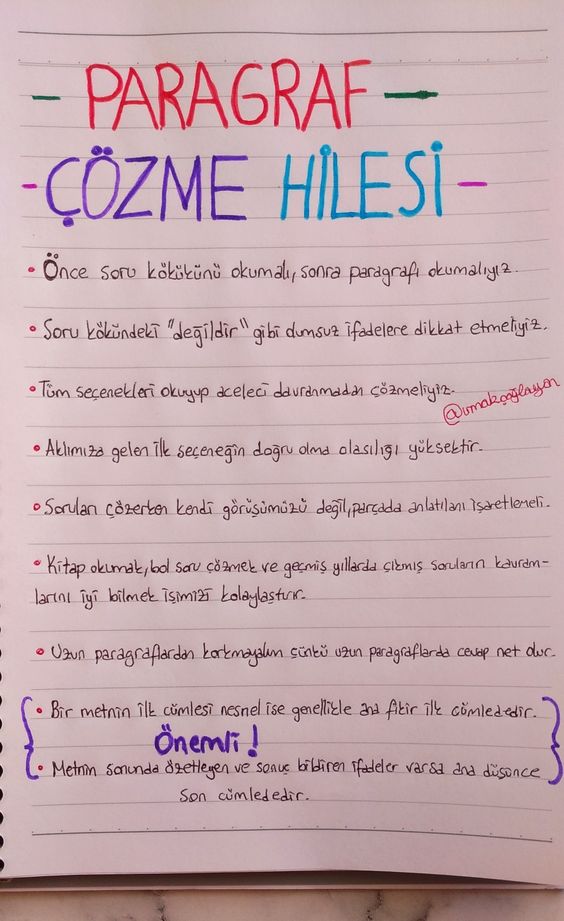 - PARAGRAF -
- ÇÖZME HİLESİ -
• Önce soru kökükünü okumalı, sonra paragrafı okumalıyız.
• Soru kökündeki "değildir" gibi olumsuz ifadelere dikkat etmeliyiz.
• Tüm seçenekleri okuyup aceleci davranmadan çözmeliyiz.
• Aklımıza gelen ilk seçeneğin doğru olma olasılığı yüksektir.
• Soruları çözerken kendi görüşümüzü değil, parçada anlatılanı işaretlemeli.
• Kitap okumak, bol soru çözmek ve geçmiş yıllarda çıkmış soruların kavram-
larını iyi bilmek işimizi kolaylaştırır.
• Uzun paragraflardan korkmayalım çünkü uzun paragraflarda cevap net olur.
• Bir metnin ilk cümlesi nesnel ise genellikle ana fikir ilk cümlededir.
Önemli!
• Metnin sonunda özetleyen ve sonuç bildiren ifadeler varsa ana düşünce
son cümlededir.